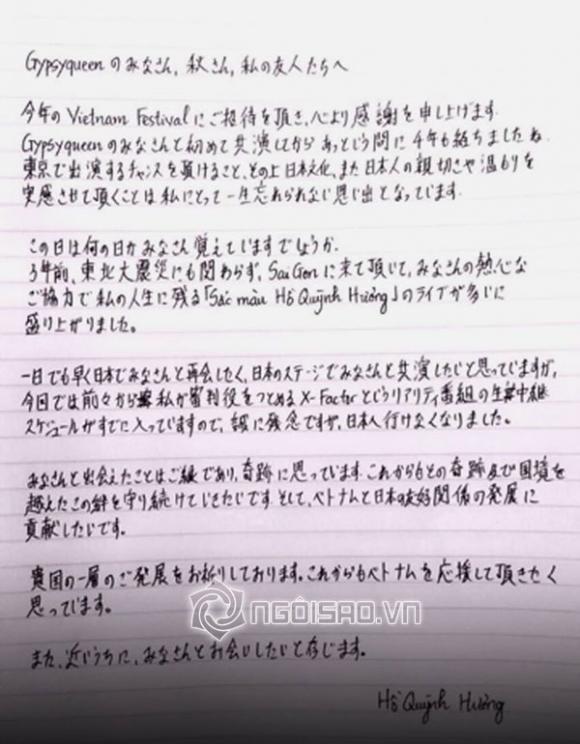 Gypsyqueenのみなさん, 秋さん, 私の友人たちへ
今年のVietnam Festivalにご招待を頂き、心より感謝を申し上げます.
Gypsyqueenのみなさんと初めて共演してからあっという間に4年も経ちましたね.
東京で出演するチャンスを頂けること、その上日本文化、また日本人の親切さや温もりを
実感させて頂くことは私にとって一生忘れられない思い出となっています.
この日は何の日かみなさん覚えていますでしょうか.
3年前、東北大震災にも関わらず、Sai Gonに来て頂いて、みなさんの熱心な
ご協力で私の人生に残る「Sắc màu Hồ Quỳnh Hương」のライブが多いに
盛り上がりました。
一日でも早く日本でみなさんと再会したく、日本のステージでみなさんと共演したいと思っていますが,
今回では前々から私が審判役をつとめるX-Factorというリアリティ番組の生中継
スケジュールがすでに入っていますので、誠に残念ですが、日本へ行けなくなりました。
みなさんと出会えたことはご縁であり、奇跡に思っています. これからもこの奇跡及び国境を
越えたこの絆を守り続けていきたいです. そして、ベトナムと日本の友好関係の発展に
貢献したいです.
貴国の一層のご発展をお祈りしております。これからもベトナムを応援して頂きたく
思っています.
NGÔISAO.VN
また、近いうちに、みなさんとお会いしたいと存じます。
Hồ Quỳnh Hương